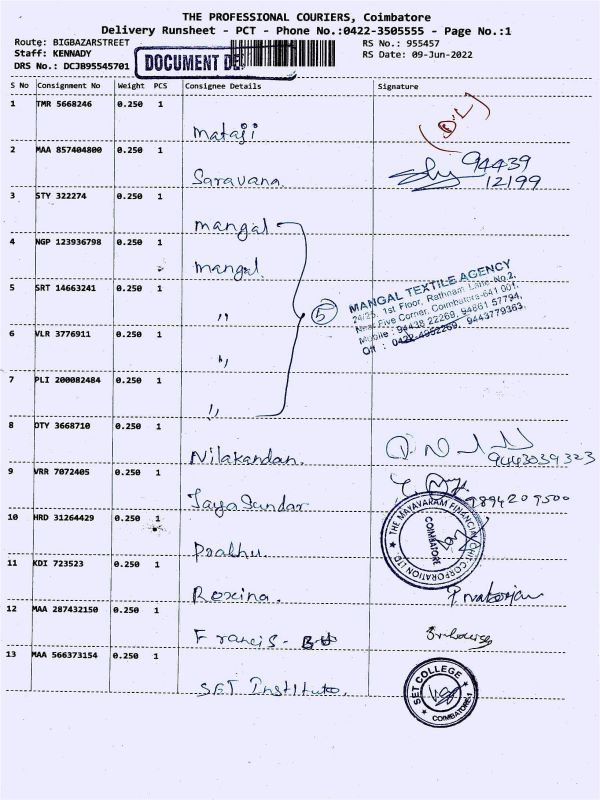 THE PROFESSIONAL COURIERS, Coimbatore
Delivery Runsheet - PCT - Phone No.:0422-3505555 - Page No.:1
Route: BIGBAZARSTREET
Staff: KENNADY
DRS No.: DCJB95545701
DOCUMENT DE
RS No.: 955457
RS Date: 09-Jun-2022
S No Consignment No Weight PCS Consignee Details Signature
1 TMR 5668246 0.250 1 Mataji
2 MAA 857404800 0.250 1 Saravana. 94439
12199
3 STY 322274 0.250 1 mangal
4 NGP 123936798 0.250 1 mangal
5 SRT 14663241 0.250 1 "
6 VLR 3776911 0.250 1 "
7 PLI 200082484 0.250 1 "
5
MANGAL TEXTILE AGENCY
24/25, 1st Floor, Rathinam Lane-No.2,
Near Five Corner, Coimbatore-641 001.
Mobile : 94438 22269, 94861 57794,
Off : 0422-4952269, 9443779363.
8 OTY 3668710 0.250 1 Nilakandan. 9443039323
9 VRR 7072405 0.250 1 Jaya Sundar 9894209500
10 HRD 31264429 0.250 1 Prabhu
THE MAYAVARAM FINANCIAL CHIT CORPORATION LTD.
COIMBATORE
11 KDI 723523 0.250 1 Roxina.
12 MAA 287432150 0.250 1 Francis -
13 MAA 566373154 0.250 1 SET Institute.
SET COLLEGE
COIMBATORE-1